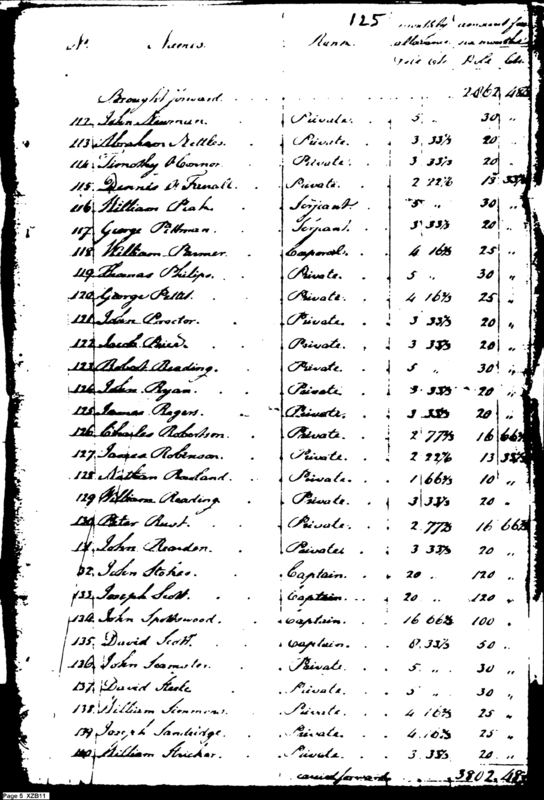 125
No. Names. Rank. monthly allowance amount for six months
Dols Cts D. Ls Cts.
Brought forward 2462 48
112 John Newman. Private. 5 " 30 "
113 Abraham Nettles. Private. 3 33⅓ 20 "
114 Timothy O Connor Private. 3 33⅓ 20 "
115 Dennis Private. 2 22 13 33⅓
116 William Serjant. 5 " 30 "
117 George Serjant. 3 33⅓ 20 "
118 William Corporal. 4 16⅔ 25 "
119 Thomas Philips. Private. 5 " 30 "
120 George Pettit. Private. 4 16⅔ 25 "
121 John Proctor. Private. 3 33⅓ 20 "
122 Jacob Private. 3 33⅓ 20 "
123 Robert Reading. Private. 5 " 30 "
124 John Ryan. Private 3 33⅓ 20 "
125 James Rogers. Private. 3 33⅓ 20 "
126 Charles Robertson. Private 2 77⅔ 16 66⅔
127 James Robinson. Private. 2 22 13 33⅓
128 Nathan Rowland. Private. 1 66⅔ 10 "
129 William Reading. Private. 3 33⅓ 20 "
130 Peter Rust. Private. 2 77⅔ 16 66⅔
131 John Rearden. Private 3 33⅓ 20 "
132 John Stokes. Captain. 20 " 120 "
133 Joseph Scott. Captain 20 " 120 "
134 John Spottswood. Captain. 16 66⅔ 100 "
135 David Scott. Captain 8 33⅓ 50 "
136 John Seamster. Private. 5 " 30 "
137 David Steele Private. 5 " 30 "
138 William Simmons. Private. 4 16⅔ 25 "
139 Joseph Sandridge. Private. 4 16⅔ 25 "
140 William Stricker. Private. 3 33⅓ 20 "
carried forward 3802. 48
Page 5 XZB11